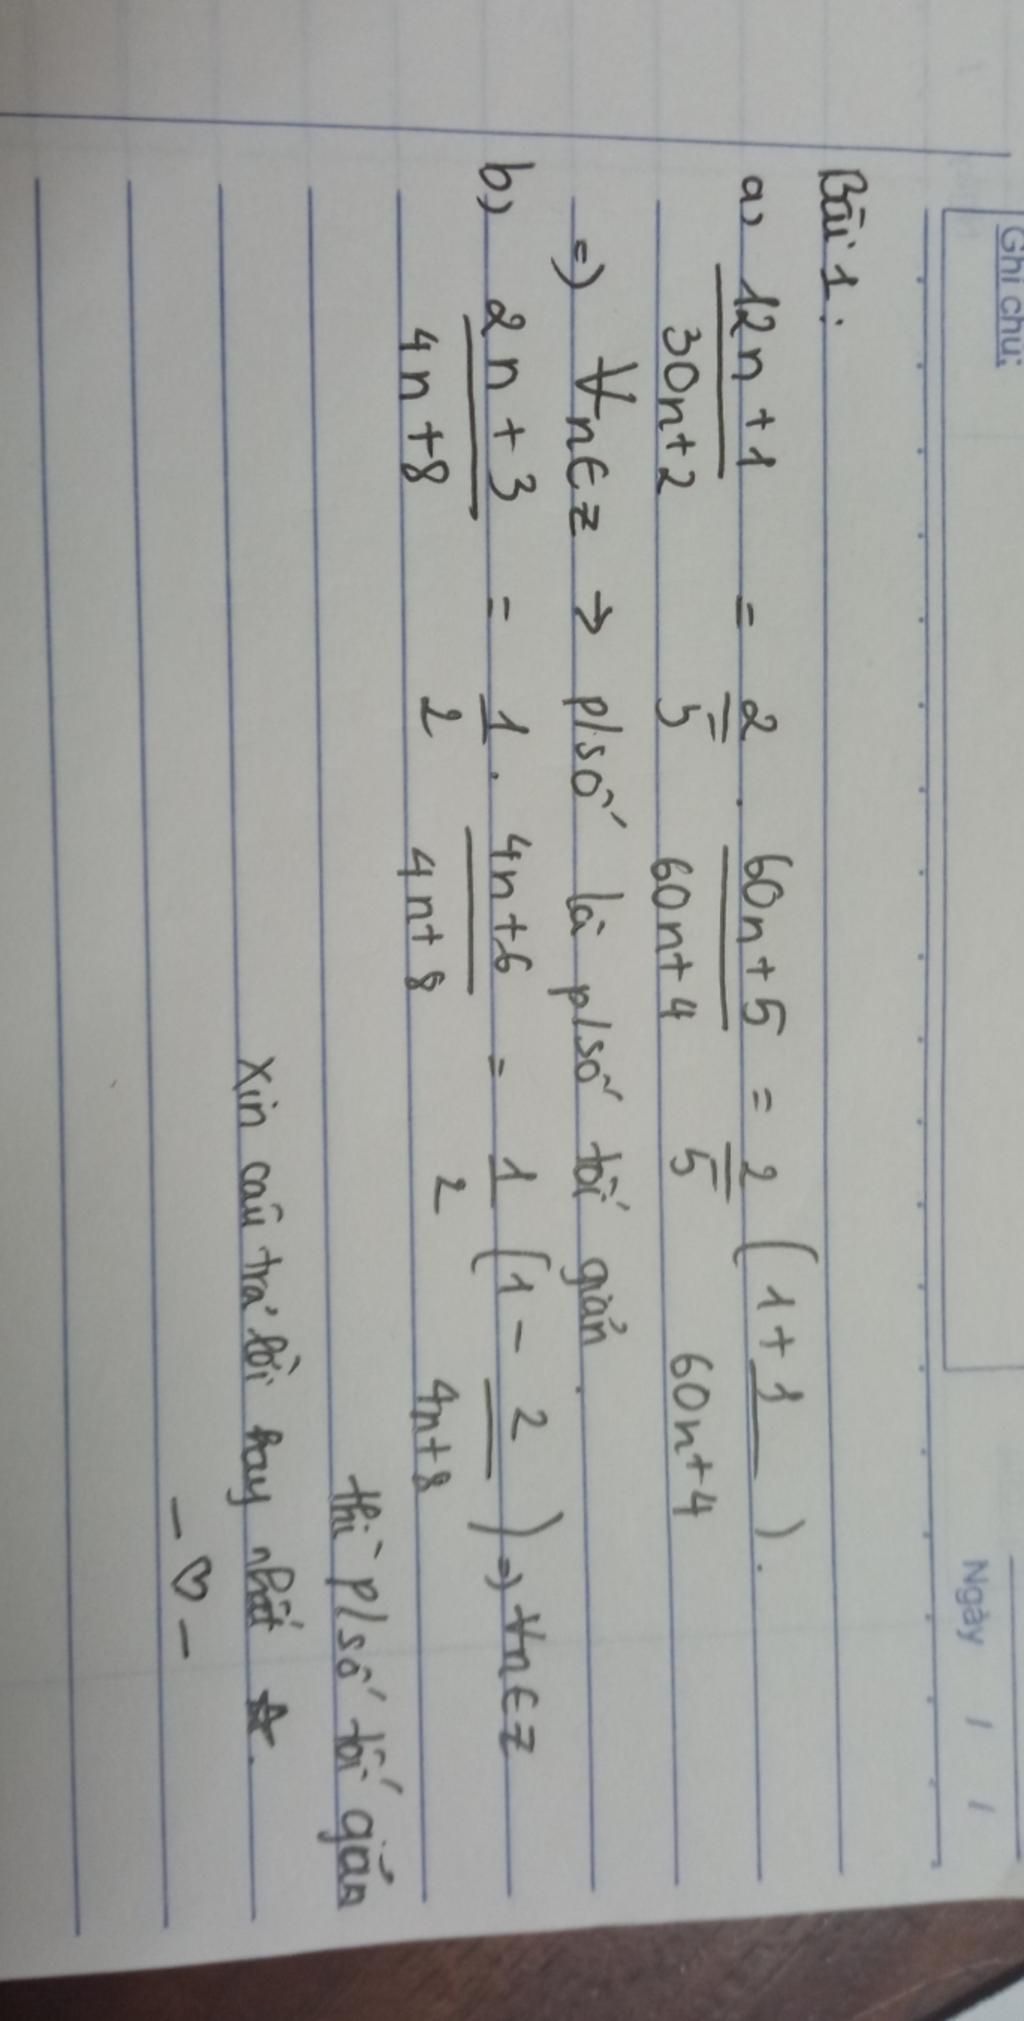 Ghi chú:
Ngày / /
Bài 1:
a) \frac{12n+1}{30n+2} = \frac{2}{5} . \frac{60n+5}{60n+4} = \frac{2}{5} (1+\frac{1}{60n+4}).
=) ∀n∈Z → p/số là p/số tối giản.
b) \frac{2n+3}{4n+8} = \frac{1}{2} . \frac{4n+6}{4n+8} = \frac{1}{2} (1-\frac{2}{4n+8}) =) ∀n∈Z
thì p/số tối giản
Xin câu trả lời hay nhất ☆.
- ♡ -